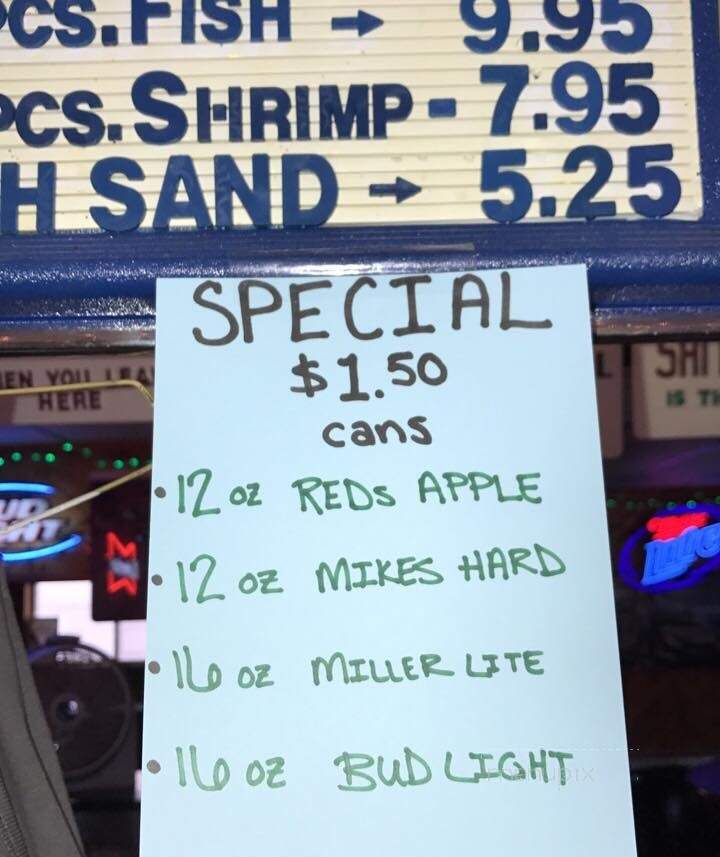 PCS. FISH → 9.95
PCS. SHRIMP - 7.95
H SAND → 5.25
SPECIAL
$1.50
cans
• 12 oz REDS APPLE
• 12 oz MIKES HARD
• 16 oz MILLER LITE
• 16 oz BUD LIGHT
EN YOU LEA
HERE
IS TH